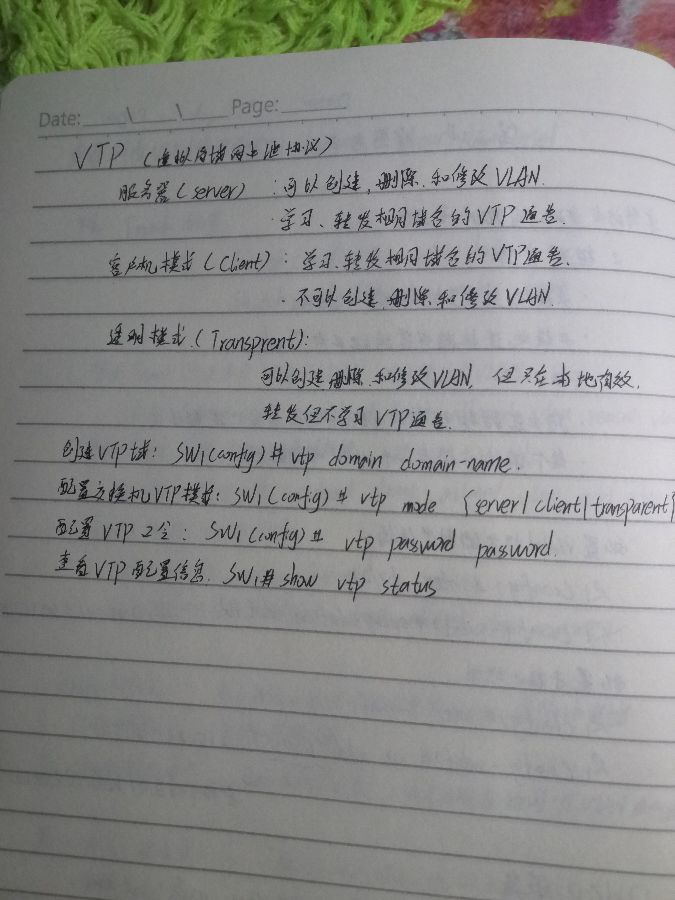 Date: \ \ Page:
VTP (虚拟局域网中继协议)
服务器(server) : 可以创建,删除.和修改VLAN.
· 学习、转发相同域名的VTP通告.
客户机模式(Client): 学习、转发相同域名的VTP通告.
· 不可以创建、删除和修改VLAN.
透明模式.(Transprent):
可以创建、删除.和修改VLAN, 但只在本地有效.
转发但不学习VTP通告.
创建VTP域: SW1(config)# vtp domain domain-name.
配置交换机VTP模式: SW1(config)# vtp mode {server|client|transparent}
配置VTP口令: SW1(config)# vtp password password.
查看VTP配置信息. SW1# show vtp status